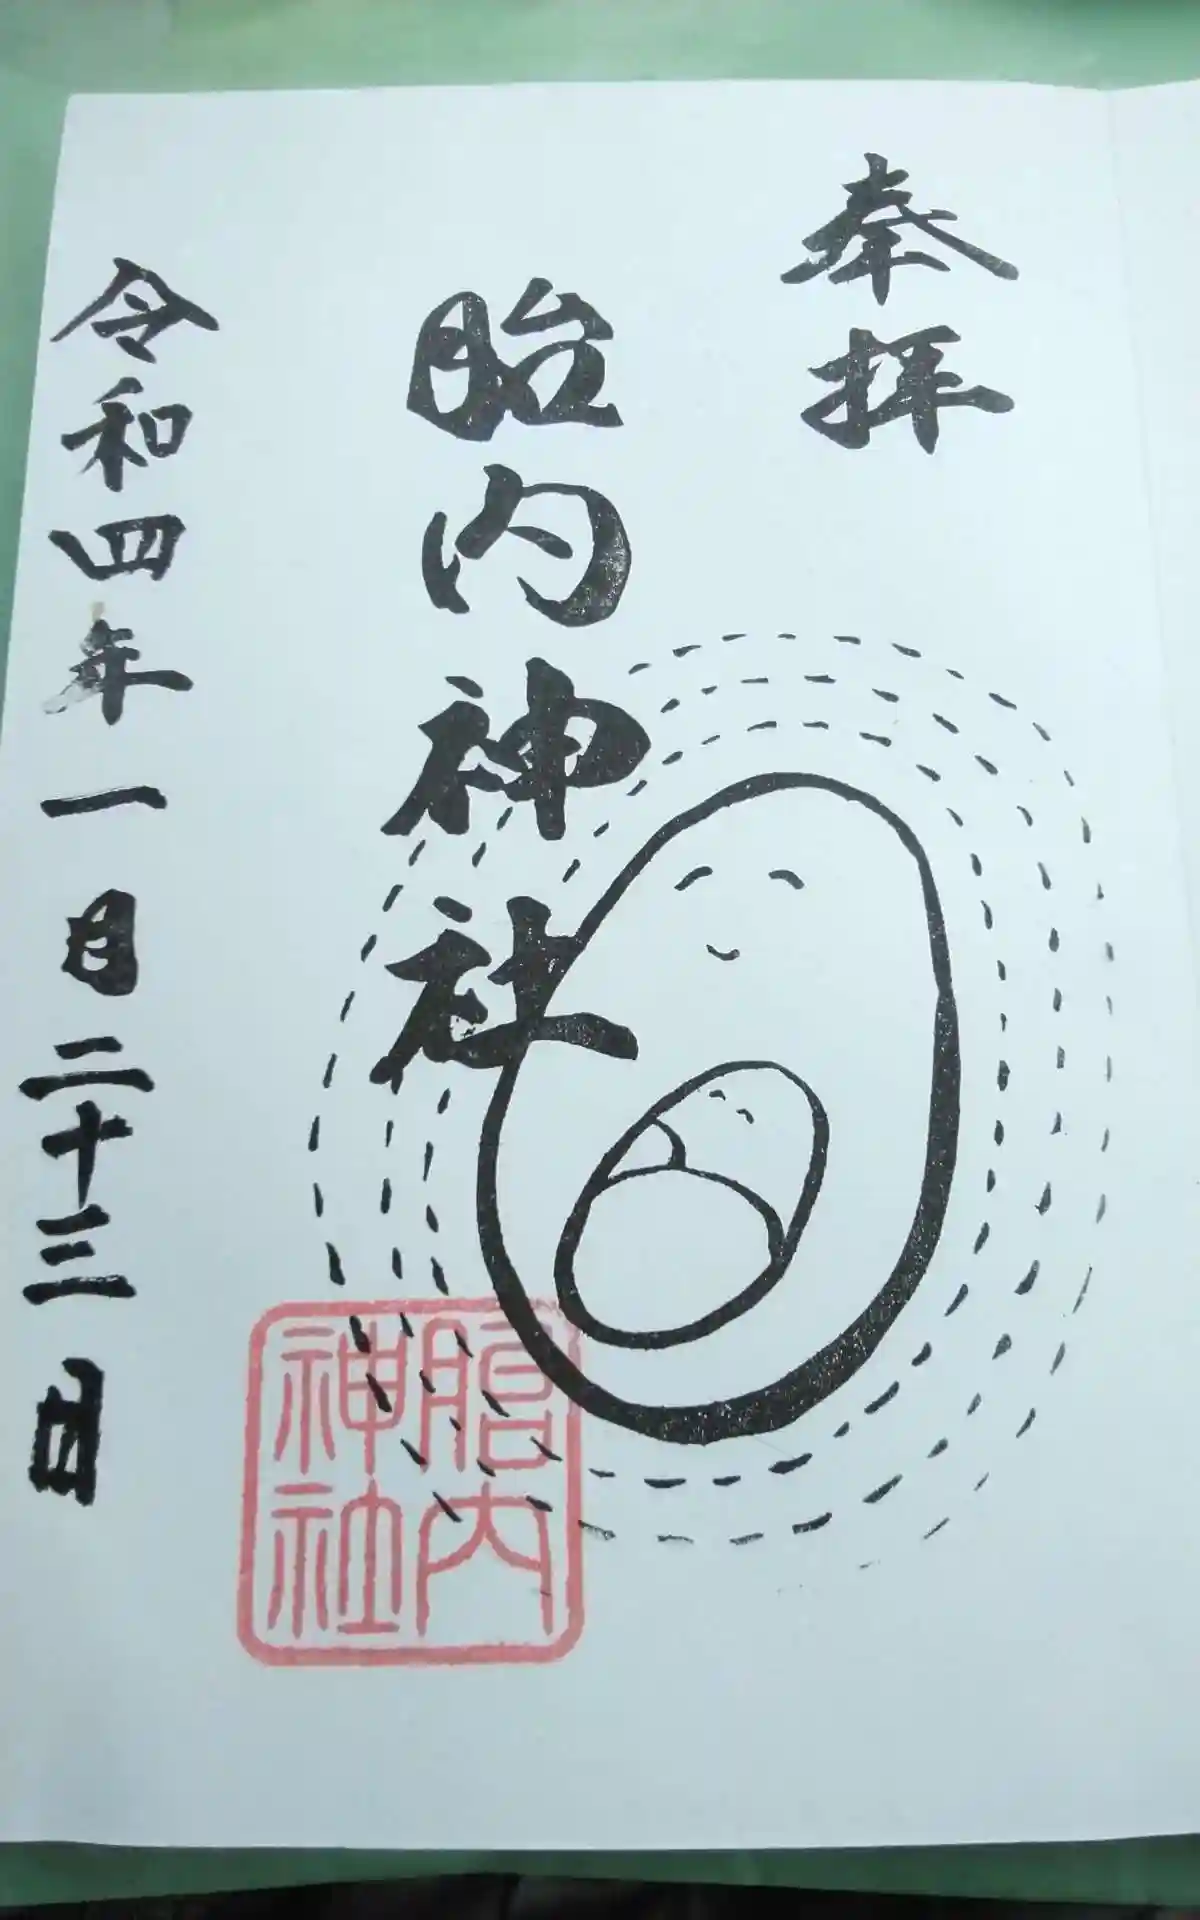 奉拝
胎内神社
令和四年一月二十三日
胎内
神社